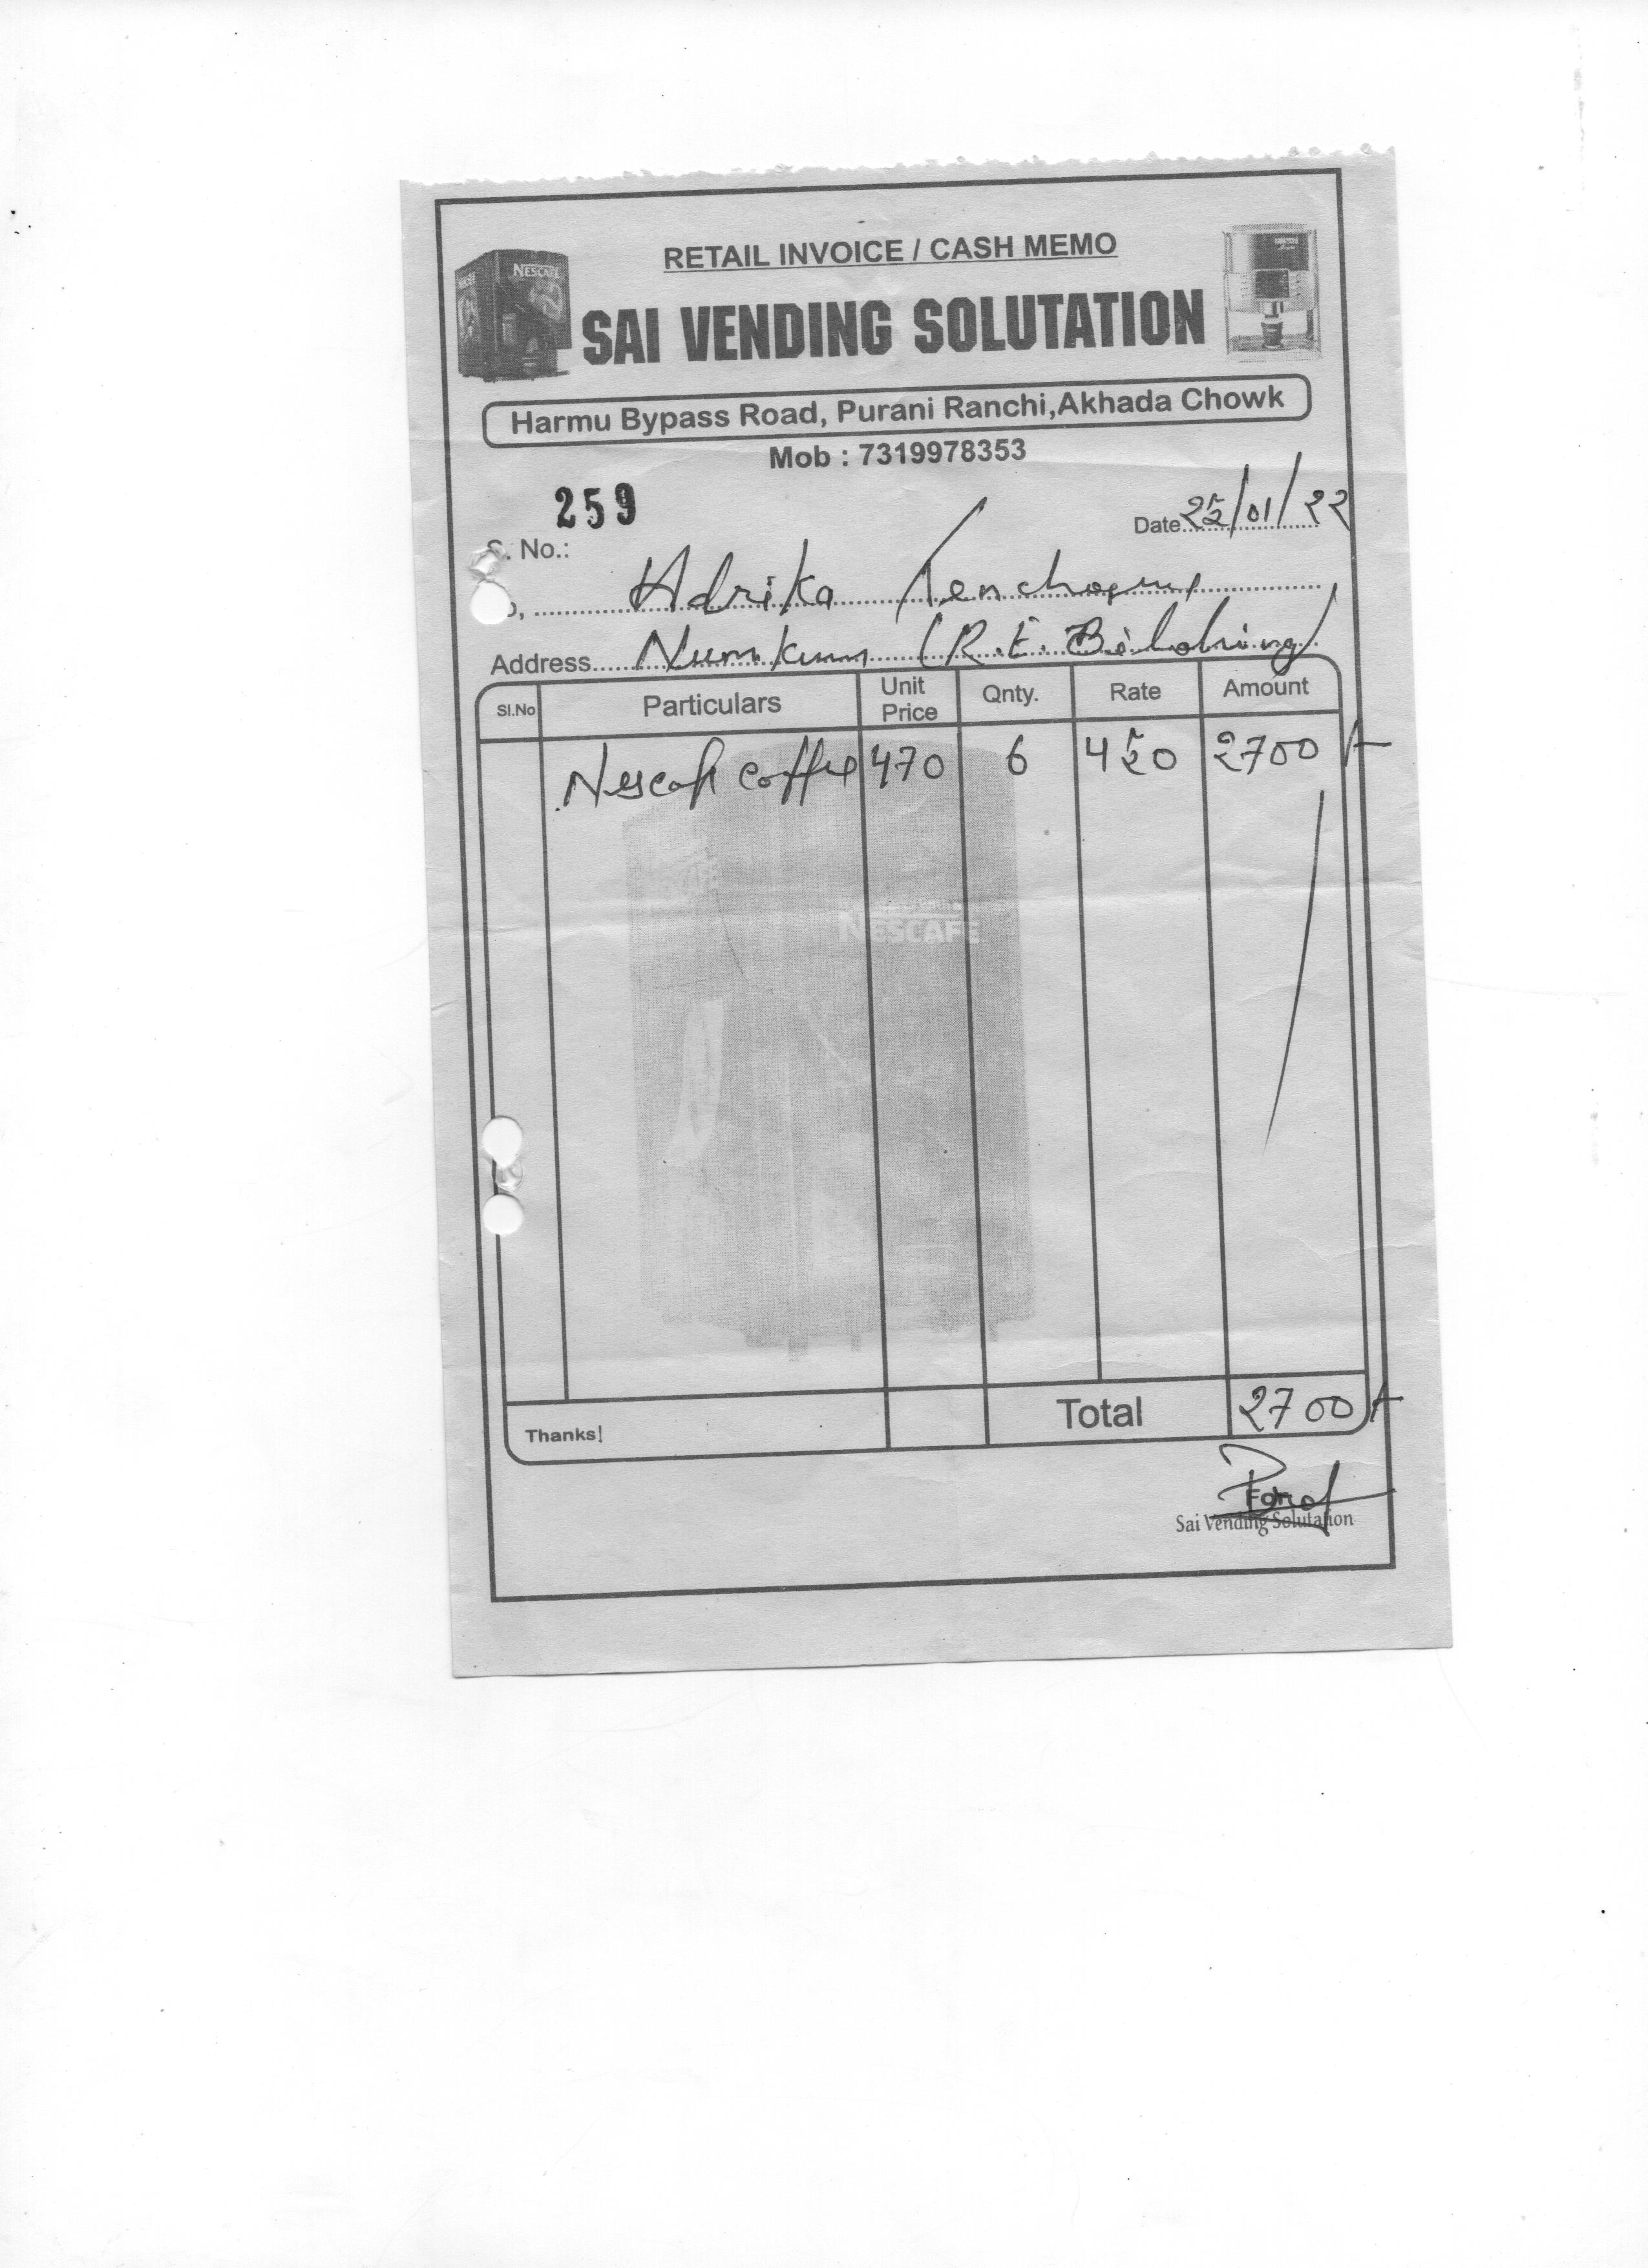 RETAIL INVOICE / CASH MEMO
NESCAFÉ
SAI VENDING SOLUTATION
Harmu Bypass Road, Purani Ranchi,Akhada Chowk
Mob : 7319978353
259
Date 25/01/22
S. No.:
Adrika
Address Numkum (R.E. Bilding)
Sl.No Particulars Unit Price Qnty. Rate Amount
Nescafe coffee 470 6 450 2700
NESCAFÉ
Thanks! Total 2700
For
Sai Vending Solutation